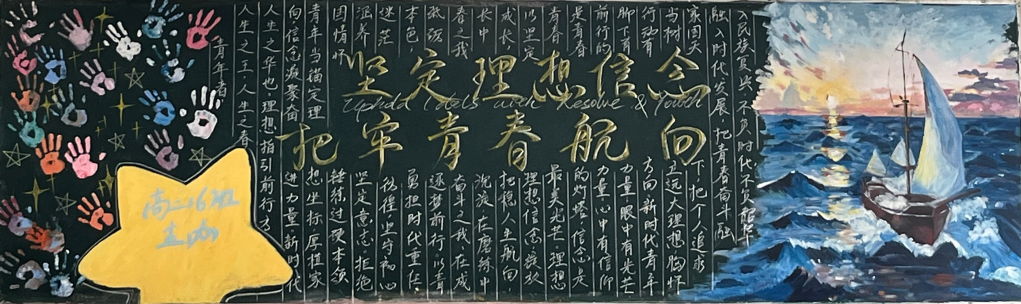 坚定理想信念
Uphold Ideals with Resolve & Youth
把牢青春航向
青年者
人生之王人生之春
人生之华也理想指引前行方
向信念凝聚奋进力量新时代
青年当锚定理想坐标厚植家
国情怀锤炼过硬本领
涵养坚定意志拒绝
迷茫彷徨坚守初心
本色勇担时代重任
砥砺逐梦前行以青
春之我奋斗之我在成
长中沉淀在磨练中
成长把稳人生航向
以坚定理想信念绽放
青春最美光芒理想
是青春的灯塔信念是
前行的力量心中有信仰
脚下有力量眼中有光芒
行动有方向新时代青年
当树立远大理想胸怀
家国天下把个人追求
融入时代发展把青春奋斗融
入民族复兴不负时代不负韶华
高二16班